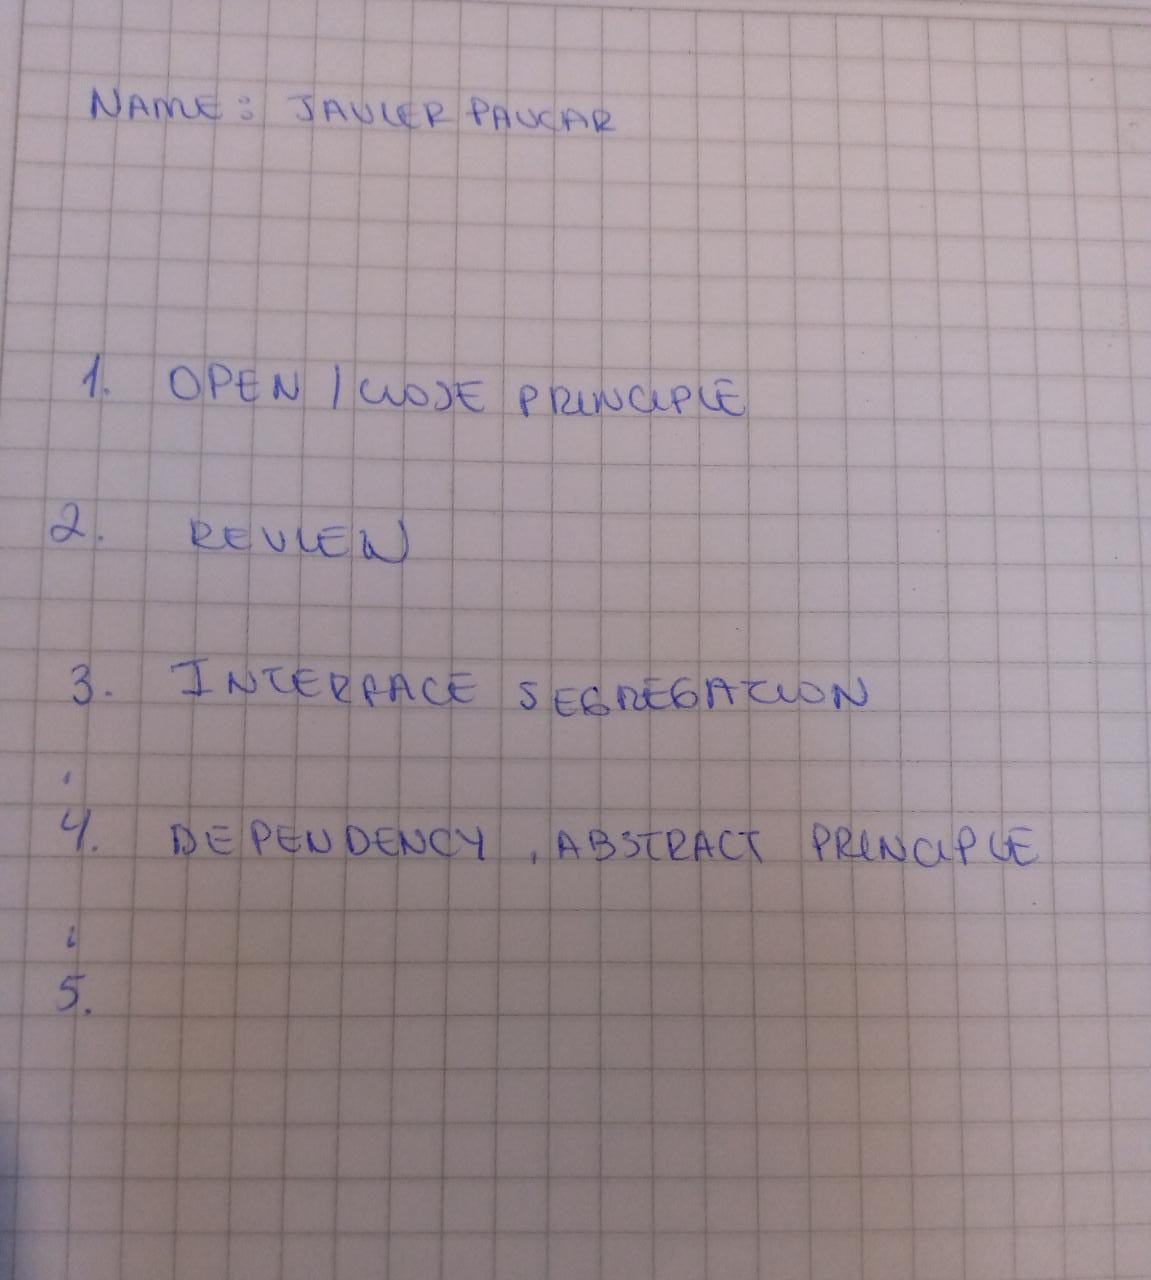 NAME: JAVIER PAUCAR
1. OPEN / CLOSE PRINCIPLE
2. REVIEW
3. INTERFACE SEGREGATION
4. DEPENDENCY, ABSTRACT PRINCIPLE
5.